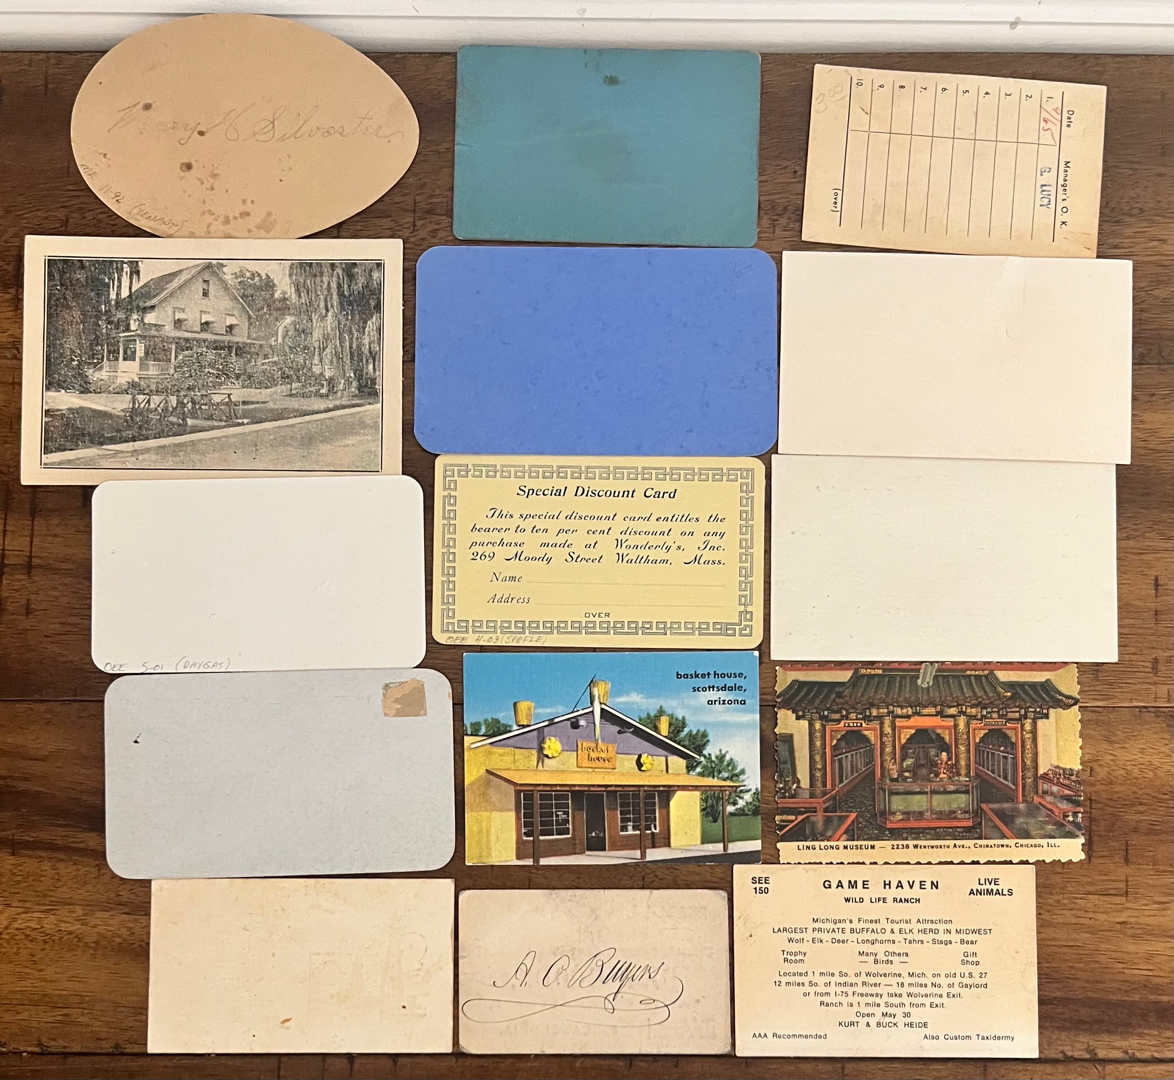 H Silvester
OEE 11-92
Date Manager's O. K.
1. 4/65 G. LUCY
2.
3.
4.
5.
6.
7.
8.
9.
10.
(over)
3.00
Special Discount Card
This special discount card entitles the
bearer to ten per cent discount on any
purchase made at Wonderly's, Inc.
269 Moody Street Waltham, Mass.
Name
Address
OVER
OEE 4-03
OEE 5-01 (DAYGAS)
basket house,
scottsdale,
arizona
basket
house
LING LONG MUSEUM — 2238 WENTWORTH AVE., CHINATOWN, CHICAGO, ILL.
A. C. Buyers
SEE
150
GAME HAVEN
LIVE
ANIMALS
WILD LIFE RANCH
Michigan's Finest Tourist Attraction
LARGEST PRIVATE BUFFALO & ELK HERD IN MIDWEST
Wolf - Elk - Deer - Longhorns - Tahrs - Stags - Bear
Trophy
Room
Many Others
— Birds —
Gift
Shop
Located 1 mile So. of Wolverine, Mich. on old U.S. 27
12 miles So. of Indian River — 18 miles No. of Gaylord
or from I-75 Freeway take Wolverine Exit.
Ranch is 1 mile South from Exit.
Open May 30
KURT & BUCK HEIDE
AAA Recommended
Also Custom Taxidermy